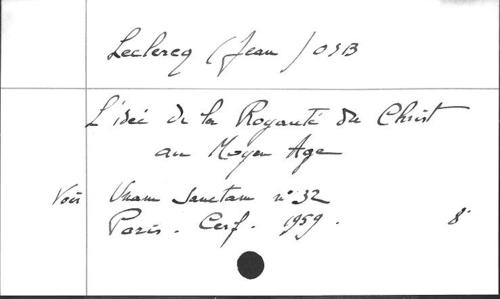 Leclercq (Jean) OSB
L'idée de la Royauté du Christ
au Moyen Age
Voir Unam Sanctam n° 32
Paris. Cerf. 1959. 8°